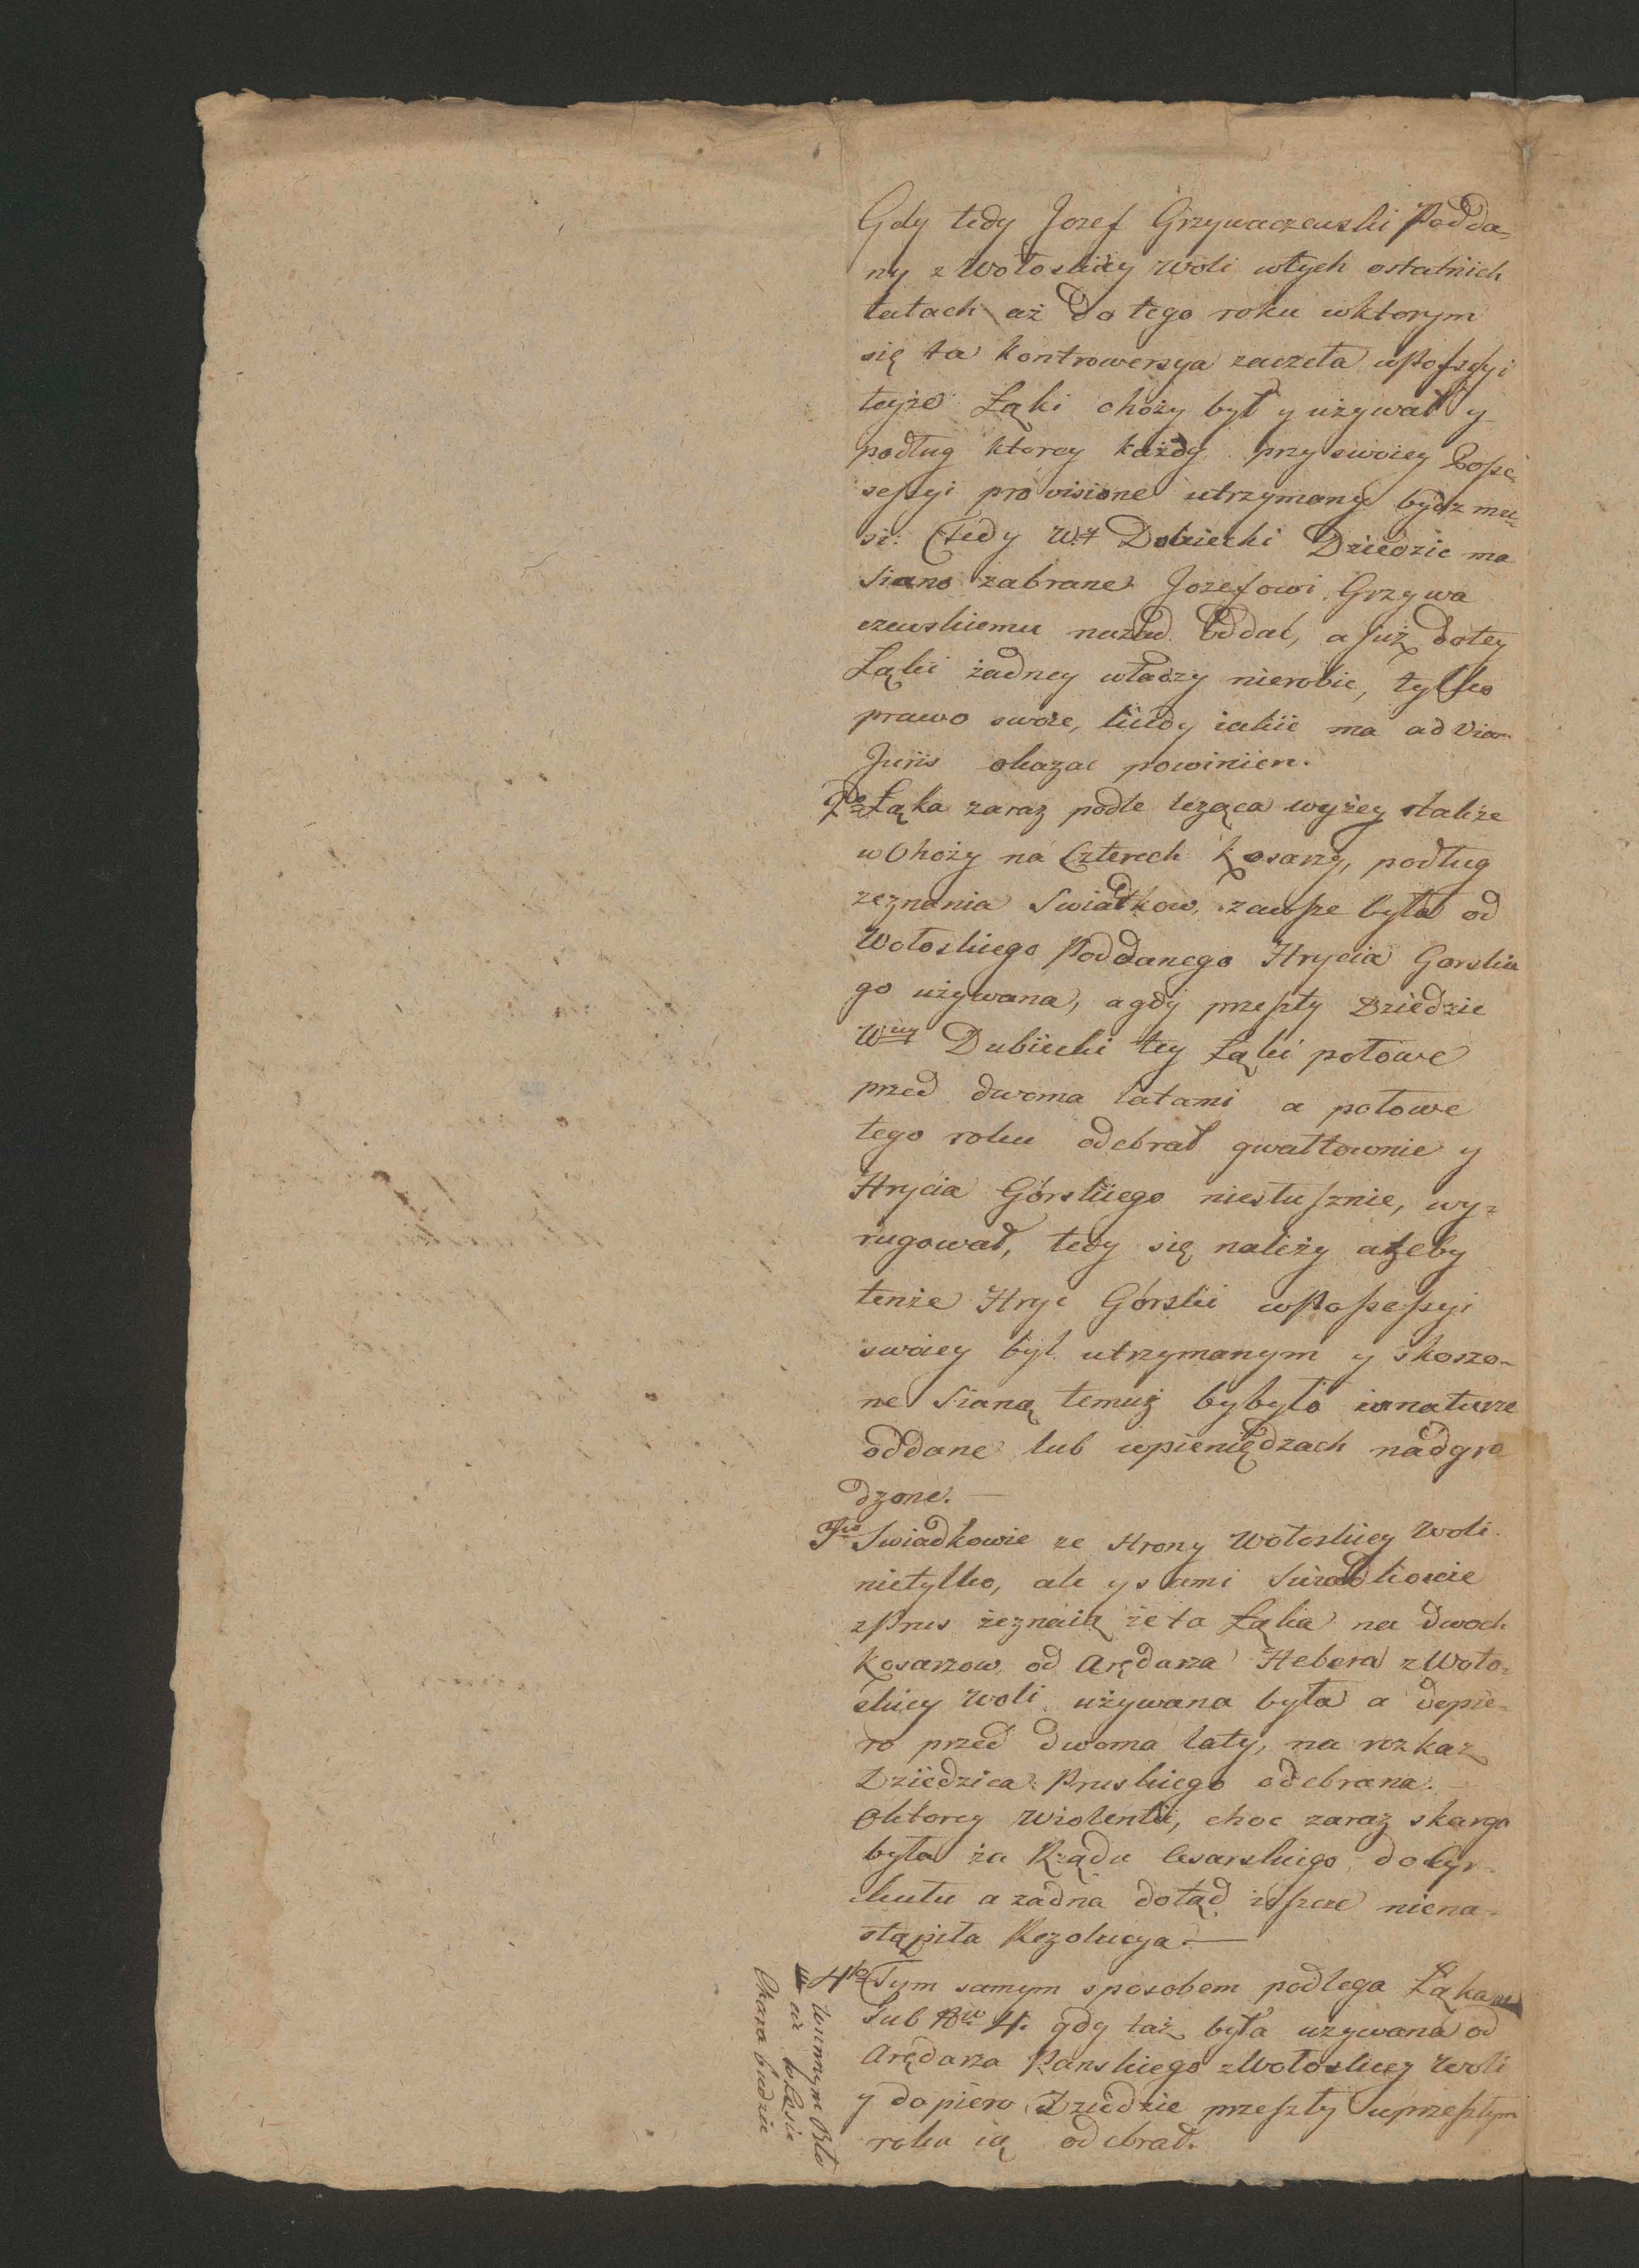 Gdy tedy Jozef Grzywaczewski Podda-
ny z Wołoskiey Woli wtych ostatnich
latach aż do tego roku wktorym
się ta kontrowersya zaczeła wPossessyi
teyże Łąki chozy był y używał y
podług ktorey każdy przy swoiey Posse-
sessyi provisione utrzymany bydz mu-
si: Tedy W. Dubiecki Dziedzic ma
Siano zabrane Jozefowi Grzywa
czewskiemu nazad oddać, a już dotey
Łąki żadney władzy nierobic, tylko
prawo swoie, kiedy iakie ma ad viam
Juris okazac powinien.
2do Łąka zaraz podle leząca wyżey
w Choży na Czterech Kosarzy, podług
zeznania Swiadkow, zawsze była od
Wołoskiego Poddanego Hrycia Gorskie
go używana, a gdy przeszły Dziedzic
Wny Dubiecki tey Łąki połowe
przed dwoma latami a połowe
tego roku odebrał gwałtownie y
Hrycia Górskiego niesłusznie, wy-
rugował, tedy się należy ażeby
tenże Hryc Górski wPossessyi
swoiey był utrzymanym y skoszo-
ne Siano temuż byłyto wnaturze
oddane lub wpieniędzach nadgro
dzone. —
3tio Swiadkowie ze strony Wołoskiey Woli
nietylko, ale y sami Swiadkowie
zPrus zeznaią że ta Łąka na dwoch
Kosarzow od Arędarza Hebera z Woło-
skiey Woli używana była a dopie-
ro przed dwoma laty, na rozkaz
Dziedzica Pruskiego odebrana. —
Oktorey Wiolentii, choc zaraz skarga
była za Rządu Cesarskiego do Cyr-
kułu a zadna dotąd ieszcze niena-
stąpiła Rezolucya. —
4to Tym samym sposobem podlega Łąka
sub Nro 4. gdy taż była uzywana od
Arędarza Panskiego z Wołoskiey Woli
y dopiero Dziedzic przeszły wprzeszłym
roku ią odebrał.
w innym